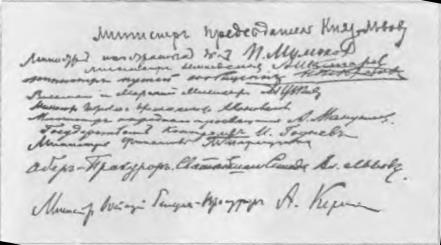 Министръ Председатель Князь Львовъ
Министръ иностранныхъ дѣлъ П. Милюковъ
Министръ земледѣлія А. Шингаревъ
министръ путей сообщенія Н. Некрасовъ
Военный и Морской Министръ А. Гучковъ
Министръ Торговли Промышленности Коноваловъ
Министръ народнаго просвѣщенія А. Мануйловъ
Государственный Контролеръ И. Годневъ
Министръ Финансовъ М. Терещенко
Оберъ-Прокуроръ Святѣйшаго Синода Вл. Львовъ
Министръ Юстиціи Генералъ-Прокуроръ А. Керенскій